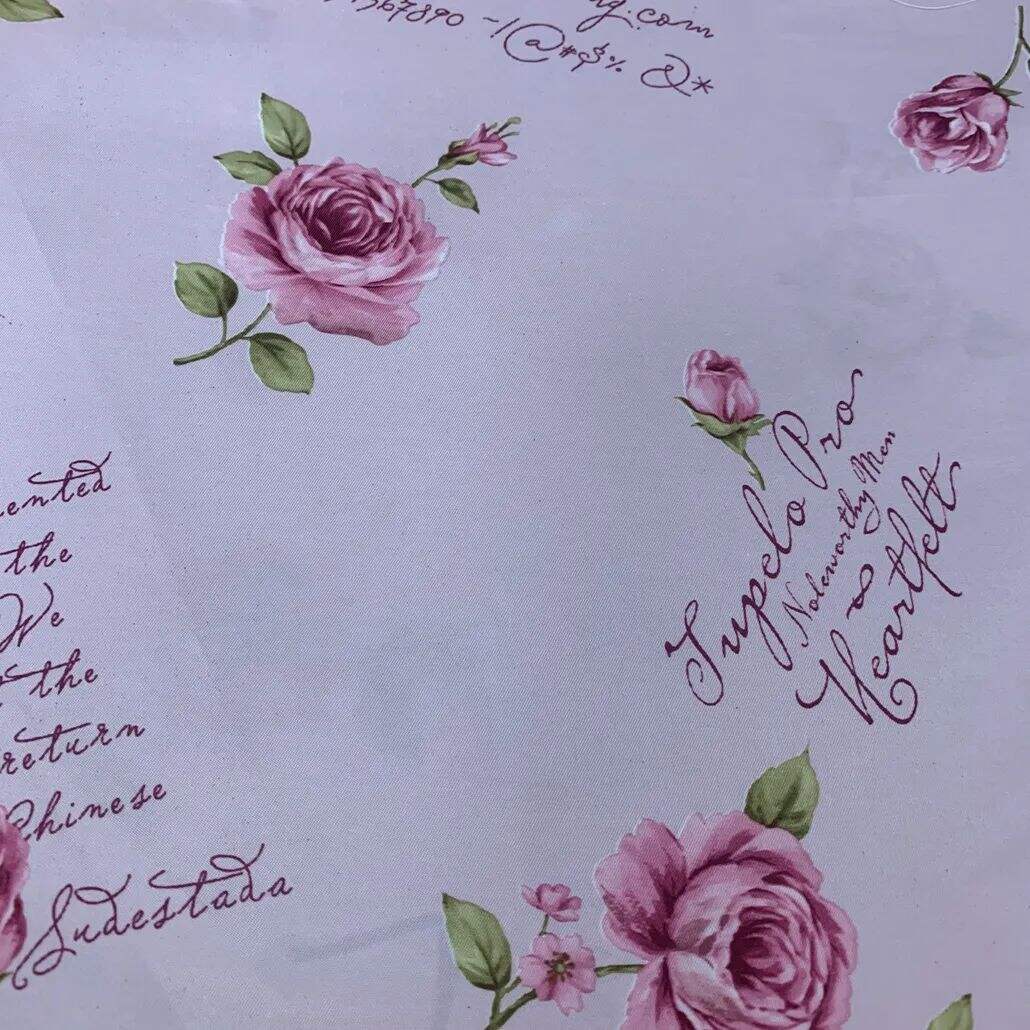 ng.com
567890 ~!@#$% &*
ented
the
We
the
return
Chinese
Sudestada
Tupelo Pro
Noteworthy Men
∞
Heartfelt